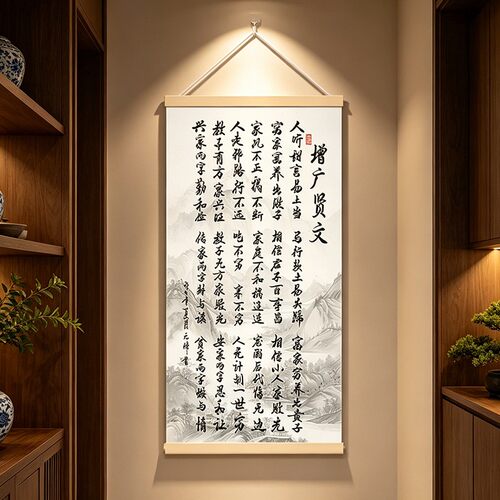 增广贤文
人听甜言易上当 马行软土易失蹄 富家穷养出贵子
穷家富养出败子 相信君子百事昌 相信小人家败光
家风不正祸不断 家庭不和 宠溺后代悔无边
人走邪路行不远 吃不穷 不穷 人无计划一世穷
教子有方家兴旺 教子无方家败光 安家两字忍和让
兴家两字勤和俭 传家两字耕与读 家两字 与
年夏月